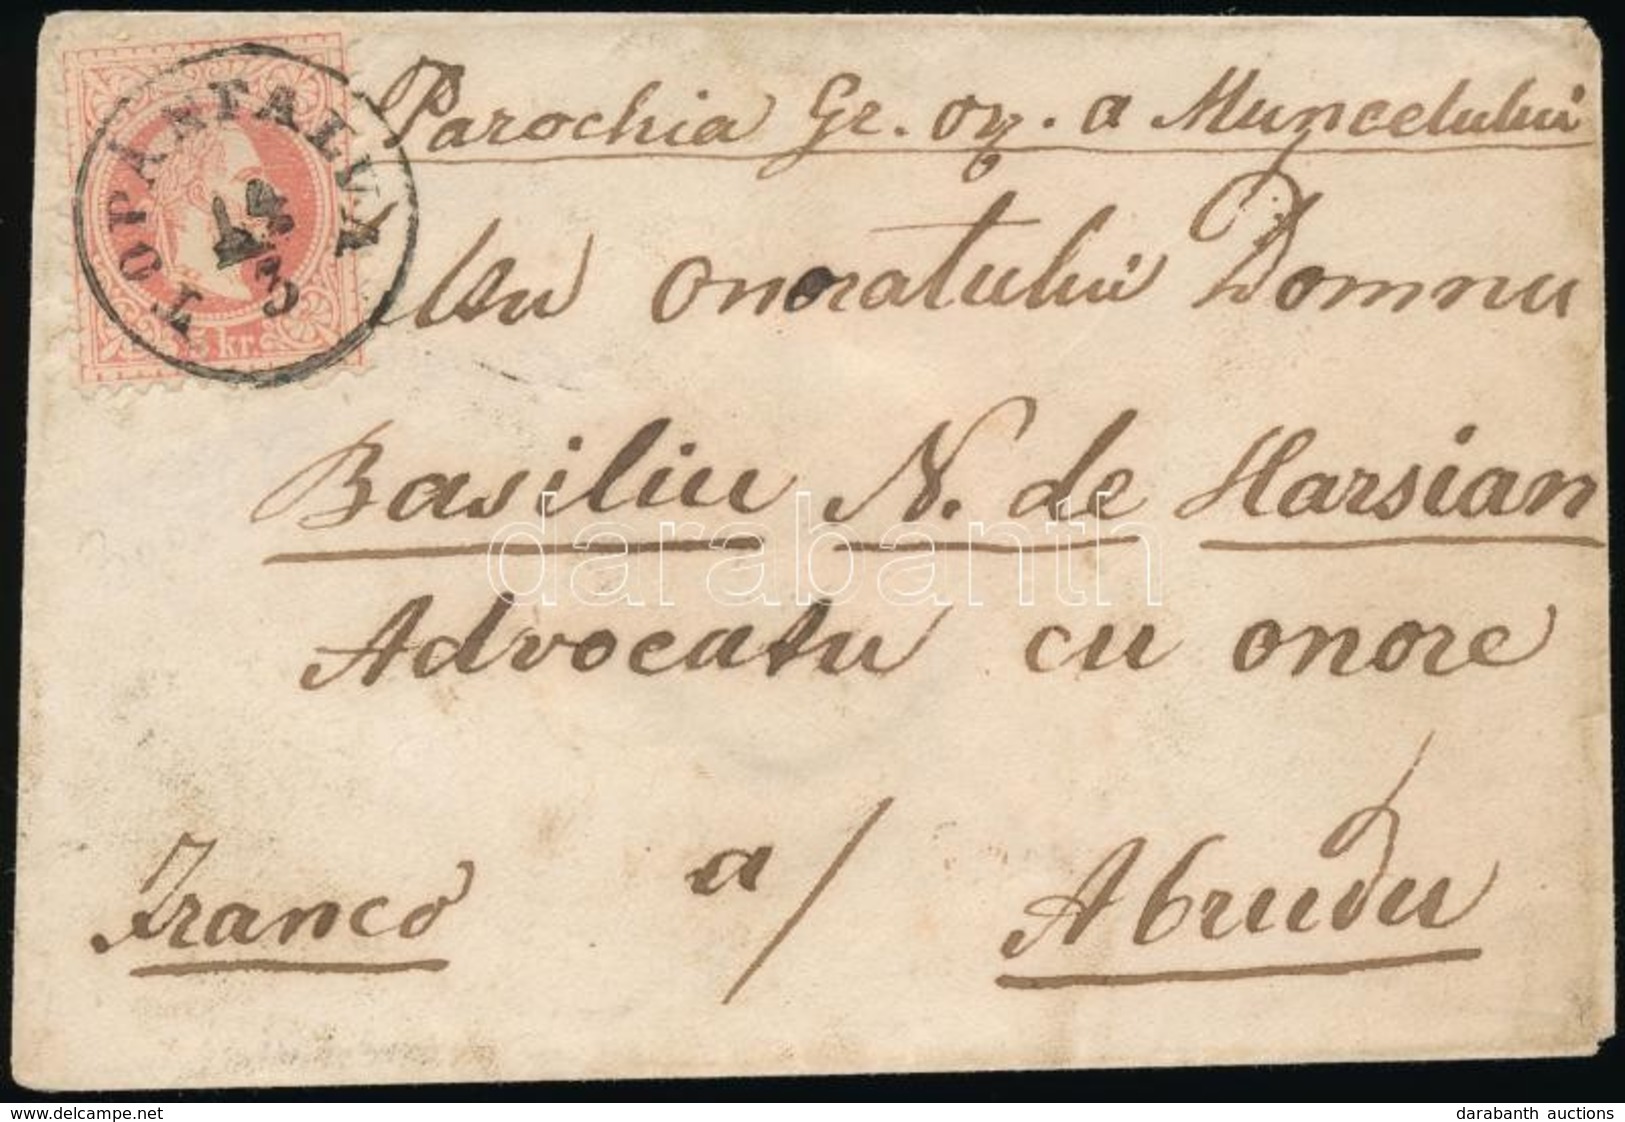 Parochia Gr. or. a Muncelului
TOPÁNFALVA
14
3
5 kr.
onoratului Domnu
Basiliu N. de Harsian
darabanth
Advocatu cu onore
Franco a/ Abrudu
www.delcampe.net darabanth auctions